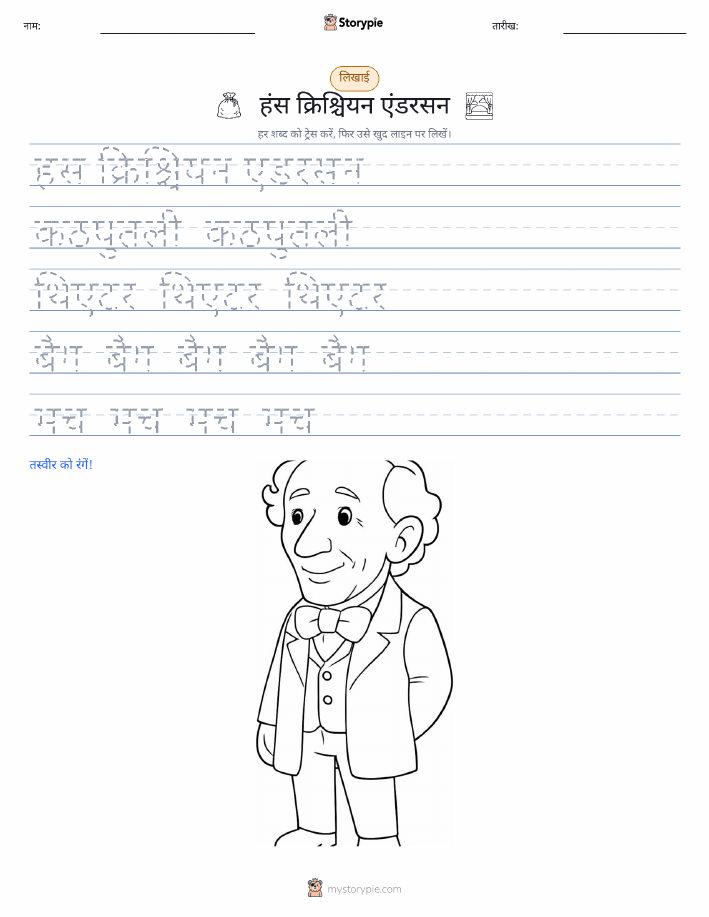 नाम:
Storypie
तारीख:
लिखाई
हंस क्रिश्चियन एंडरसन
हर शब्द को ट्रेस करें, फिर उसे खुद लाइन पर लिखें।
हंस क्रिश्चियन एंडरसन
कठपुतली कठपुतली
थिएटर थिएटर थिएटर
बैग बैग बैग बैग बैग
मंच मंच मंच मंच
तस्वीर को रंगें!
mystorypie.com